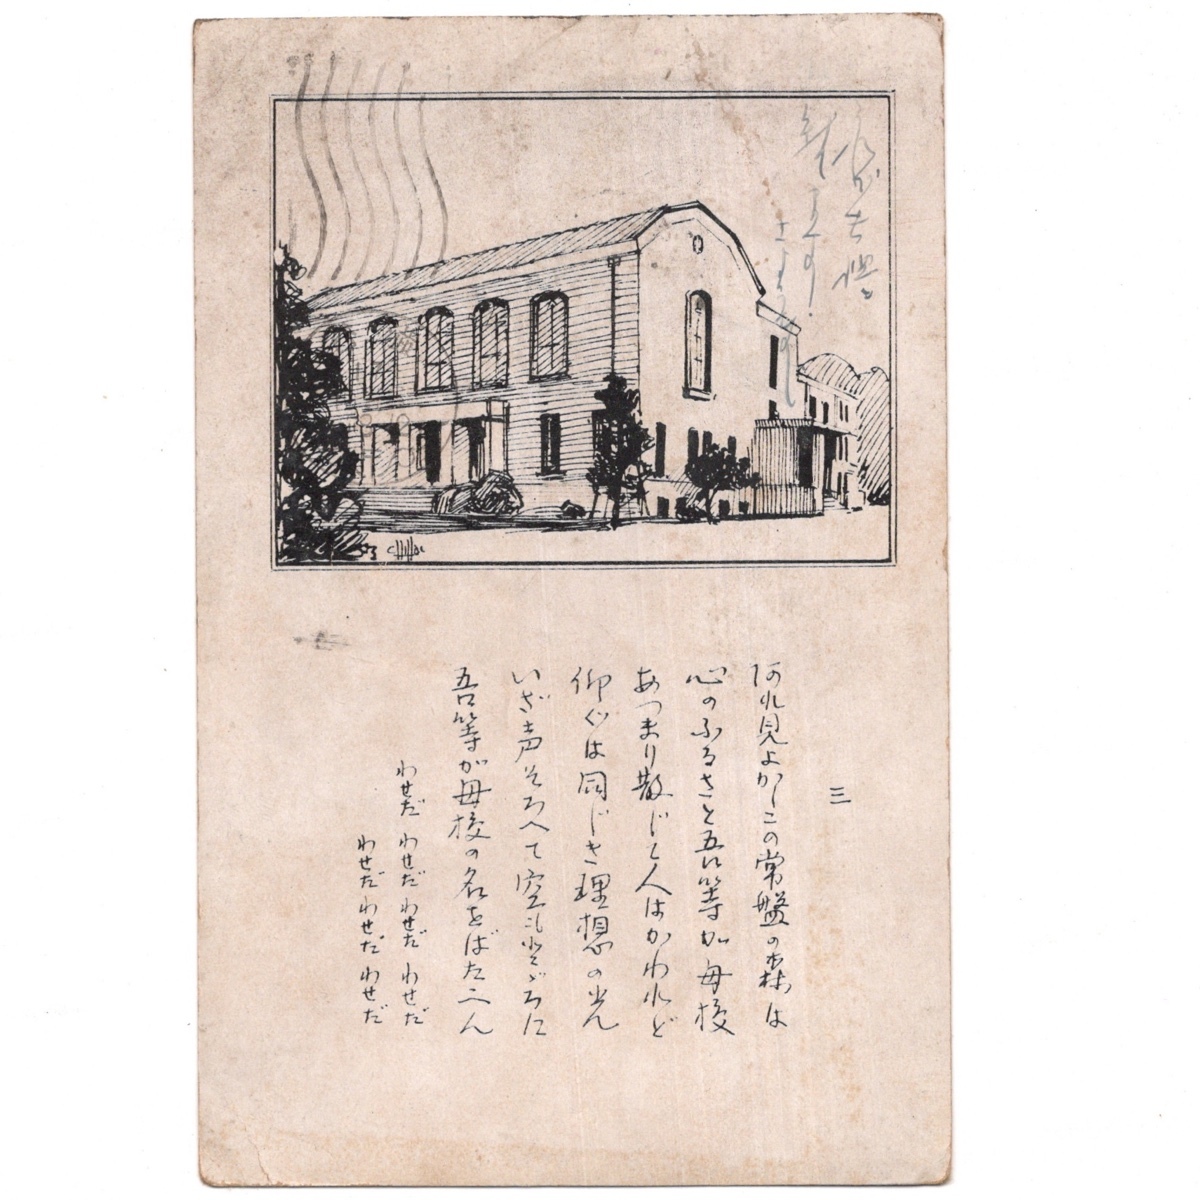 三
阿れ見よかしこの常盤の森は
心のふるさと吾等が母校
あつまり散じて人はかわれど
仰ぐは同じき理想の光
いざ声そろへて空もとゞろに
吾等が母校の名をばたゝへん
わせだ わせだ わせだ わせだ
わせだ わせだ わせだ